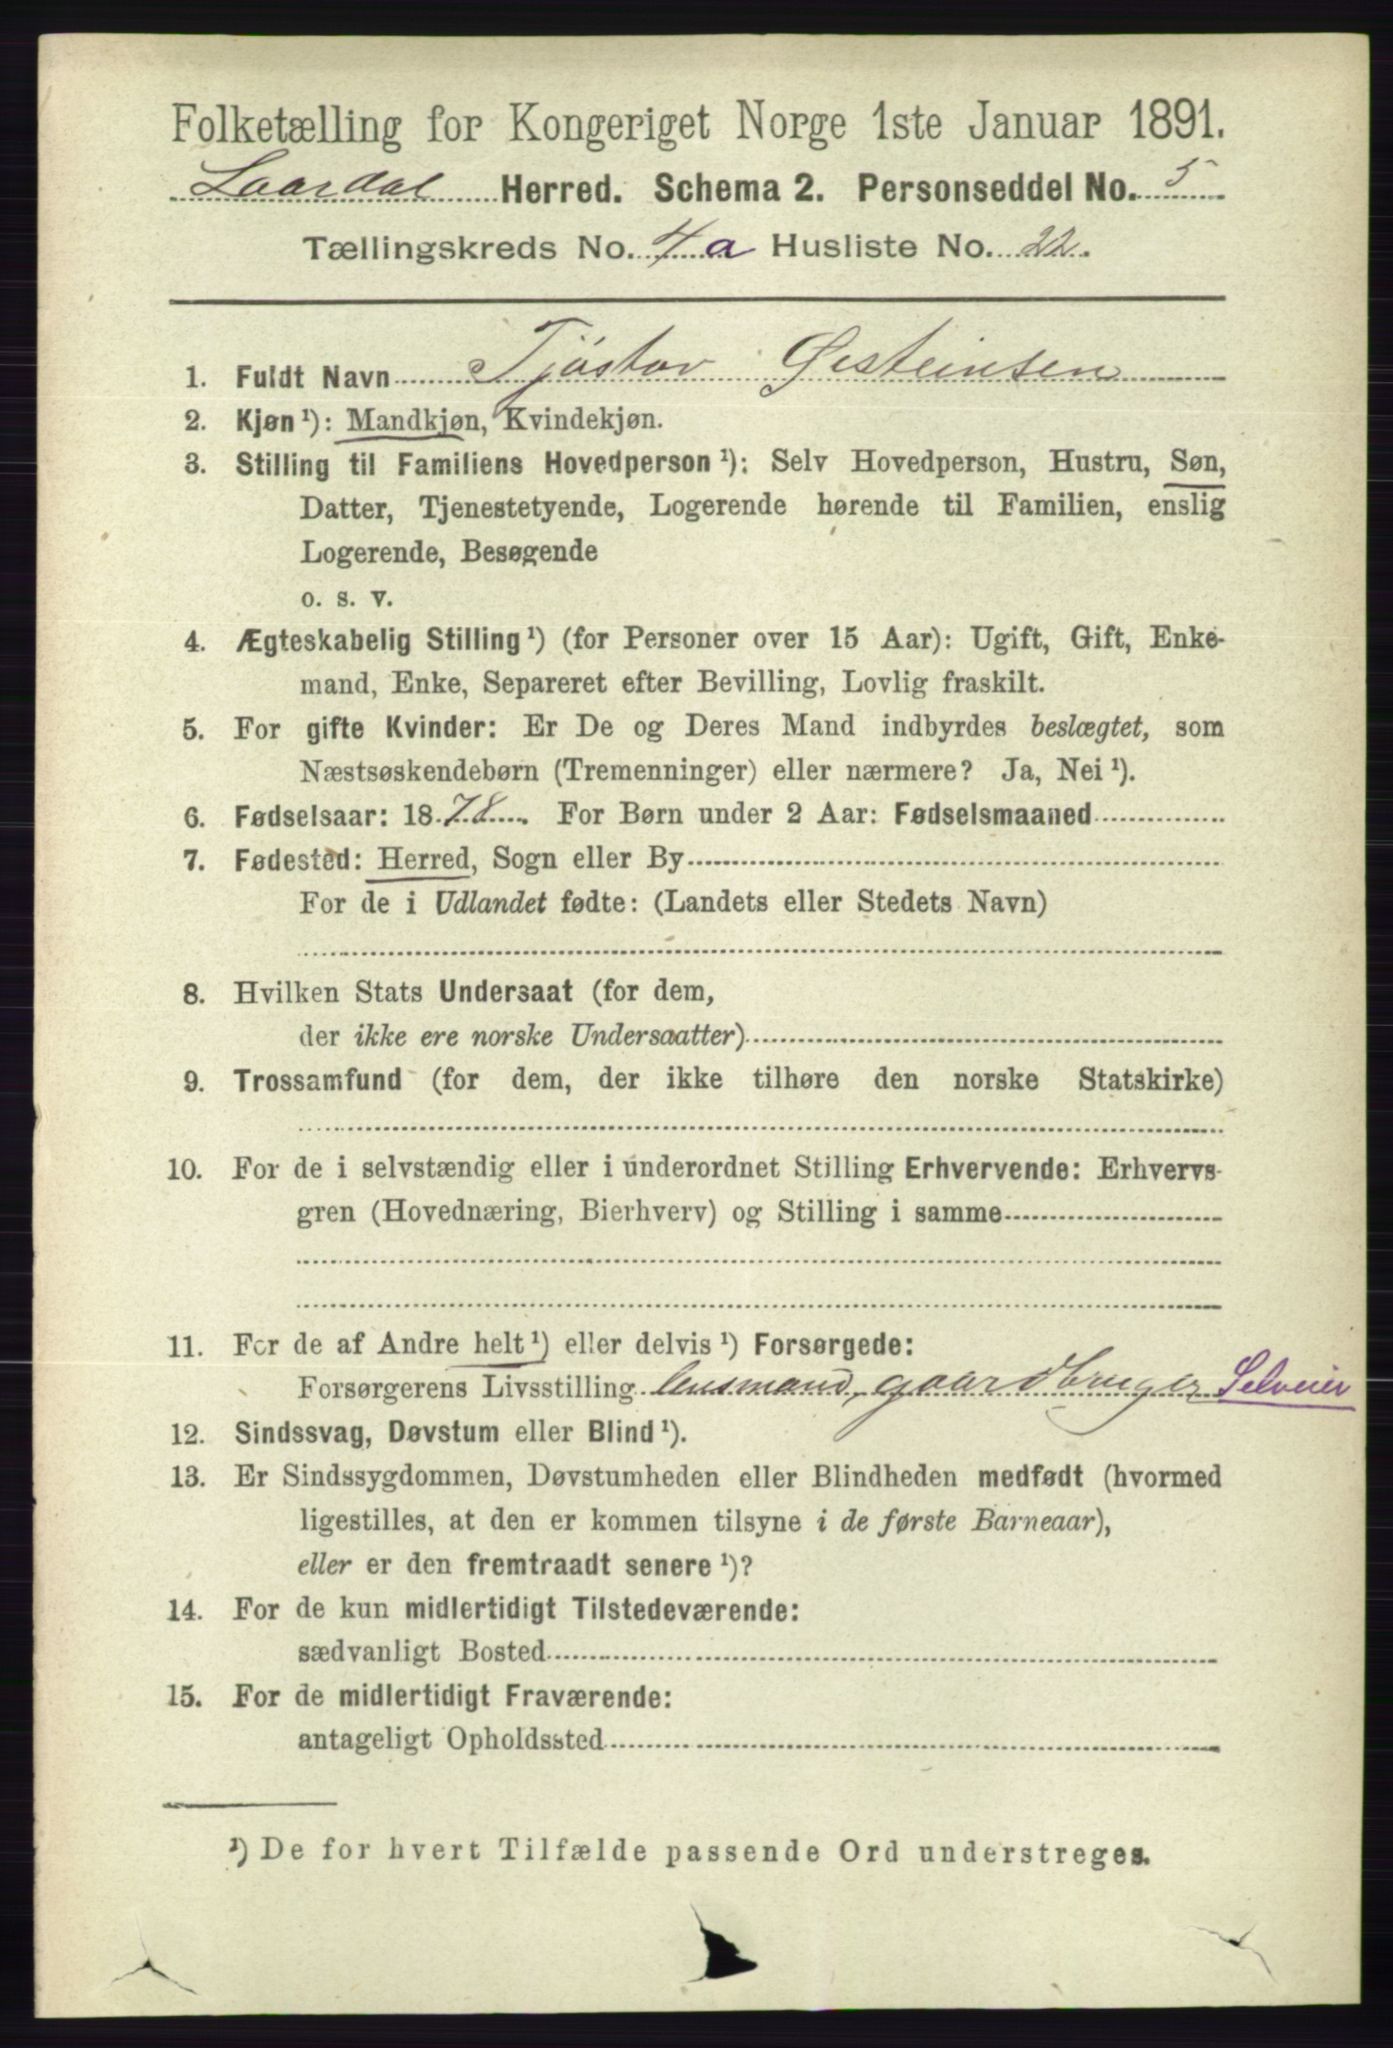 Folketælling for Kongeriget Norge 1ste Januar 1891.
Laardal Herred. Schema 2. Personseddel No. 5
Tællingskreds No. 4 a Husliste No. 22.
1. Fuldt Navn Tjöstov Øisteinsen
2. Kjøn ¹): Mandkjøn, Kvindekjøn.
3. Stilling til Familiens Hovedperson ¹): Selv Hovedperson, Hustru, Søn,
Datter, Tjenestetyende, Logerende hørende til Familien, enslig
Logerende, Besøgende
o. s. v.
4. Ægteskabelig Stilling ¹) (for Personer over 15 Aar): Ugift, Gift, Enke-
mand, Enke, Separeret efter Bevilling, Lovlig fraskilt.
5. For gifte Kvinder: Er De og Deres Mand indbyrdes beslægtet, som
Næstsøskendebørn (Tremenninger) eller nærmere? Ja, Nei ¹).
6. Fødselsaar: 1878. For Børn under 2 Aar: Fødselsmaaned
7. Fødested: Herred, Sogn eller By
For de i Udlandet fødte: (Landets eller Stedets Navn)
8. Hvilken Stats Undersaat (for dem,
der ikke ere norske Undersaatter)
9. Trossamfund (for dem, der ikke tilhøre den norske Statskirke)
10. For de i selvstændig eller i underordnet Stilling Erhvervende: Erhvervs-
gren (Hovednæring, Bierhverv) og Stilling i samme
11. For de af Andre helt ¹) eller delvis ¹) Forsørgede:
Forsørgerens Livsstilling lensmand, gaardbruger Selveier
12. Sindssvag, Døvstum eller Blind ¹).
13. Er Sindssygdommen, Døvstumheden eller Blindheden medfødt (hvormed
ligestilles, at den er kommen tilsyne i de første Barneaar),
eller er den fremtraadt senere ¹)?
14. For de kun midlertidigt Tilstedeværende:
sædvanligt Bosted
15. For de midlertidigt Fraværende:
antageligt Opholdssted
¹) De for hvert Tilfælde passende Ord understreges.